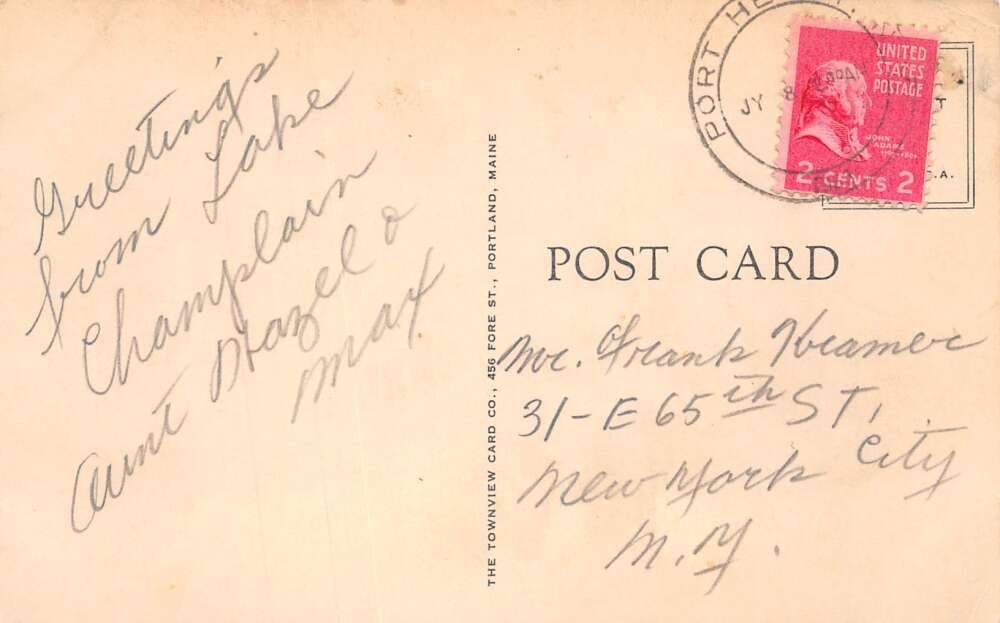 Greetings
from Lake
Champlain
Aunt Hazel &
Max
THE TOWNVIEW CARD CO., 456 FORE ST., PORTLAND, MAINE
PORT HE
JY 8
AM
UNITED
STATES
POSTAGE
JOHN
ADAMS
2 CENTS 2
T
S.A.
POST CARD
Mr. Frank Kramer
31-E 65th ST,
New York City
N.Y.